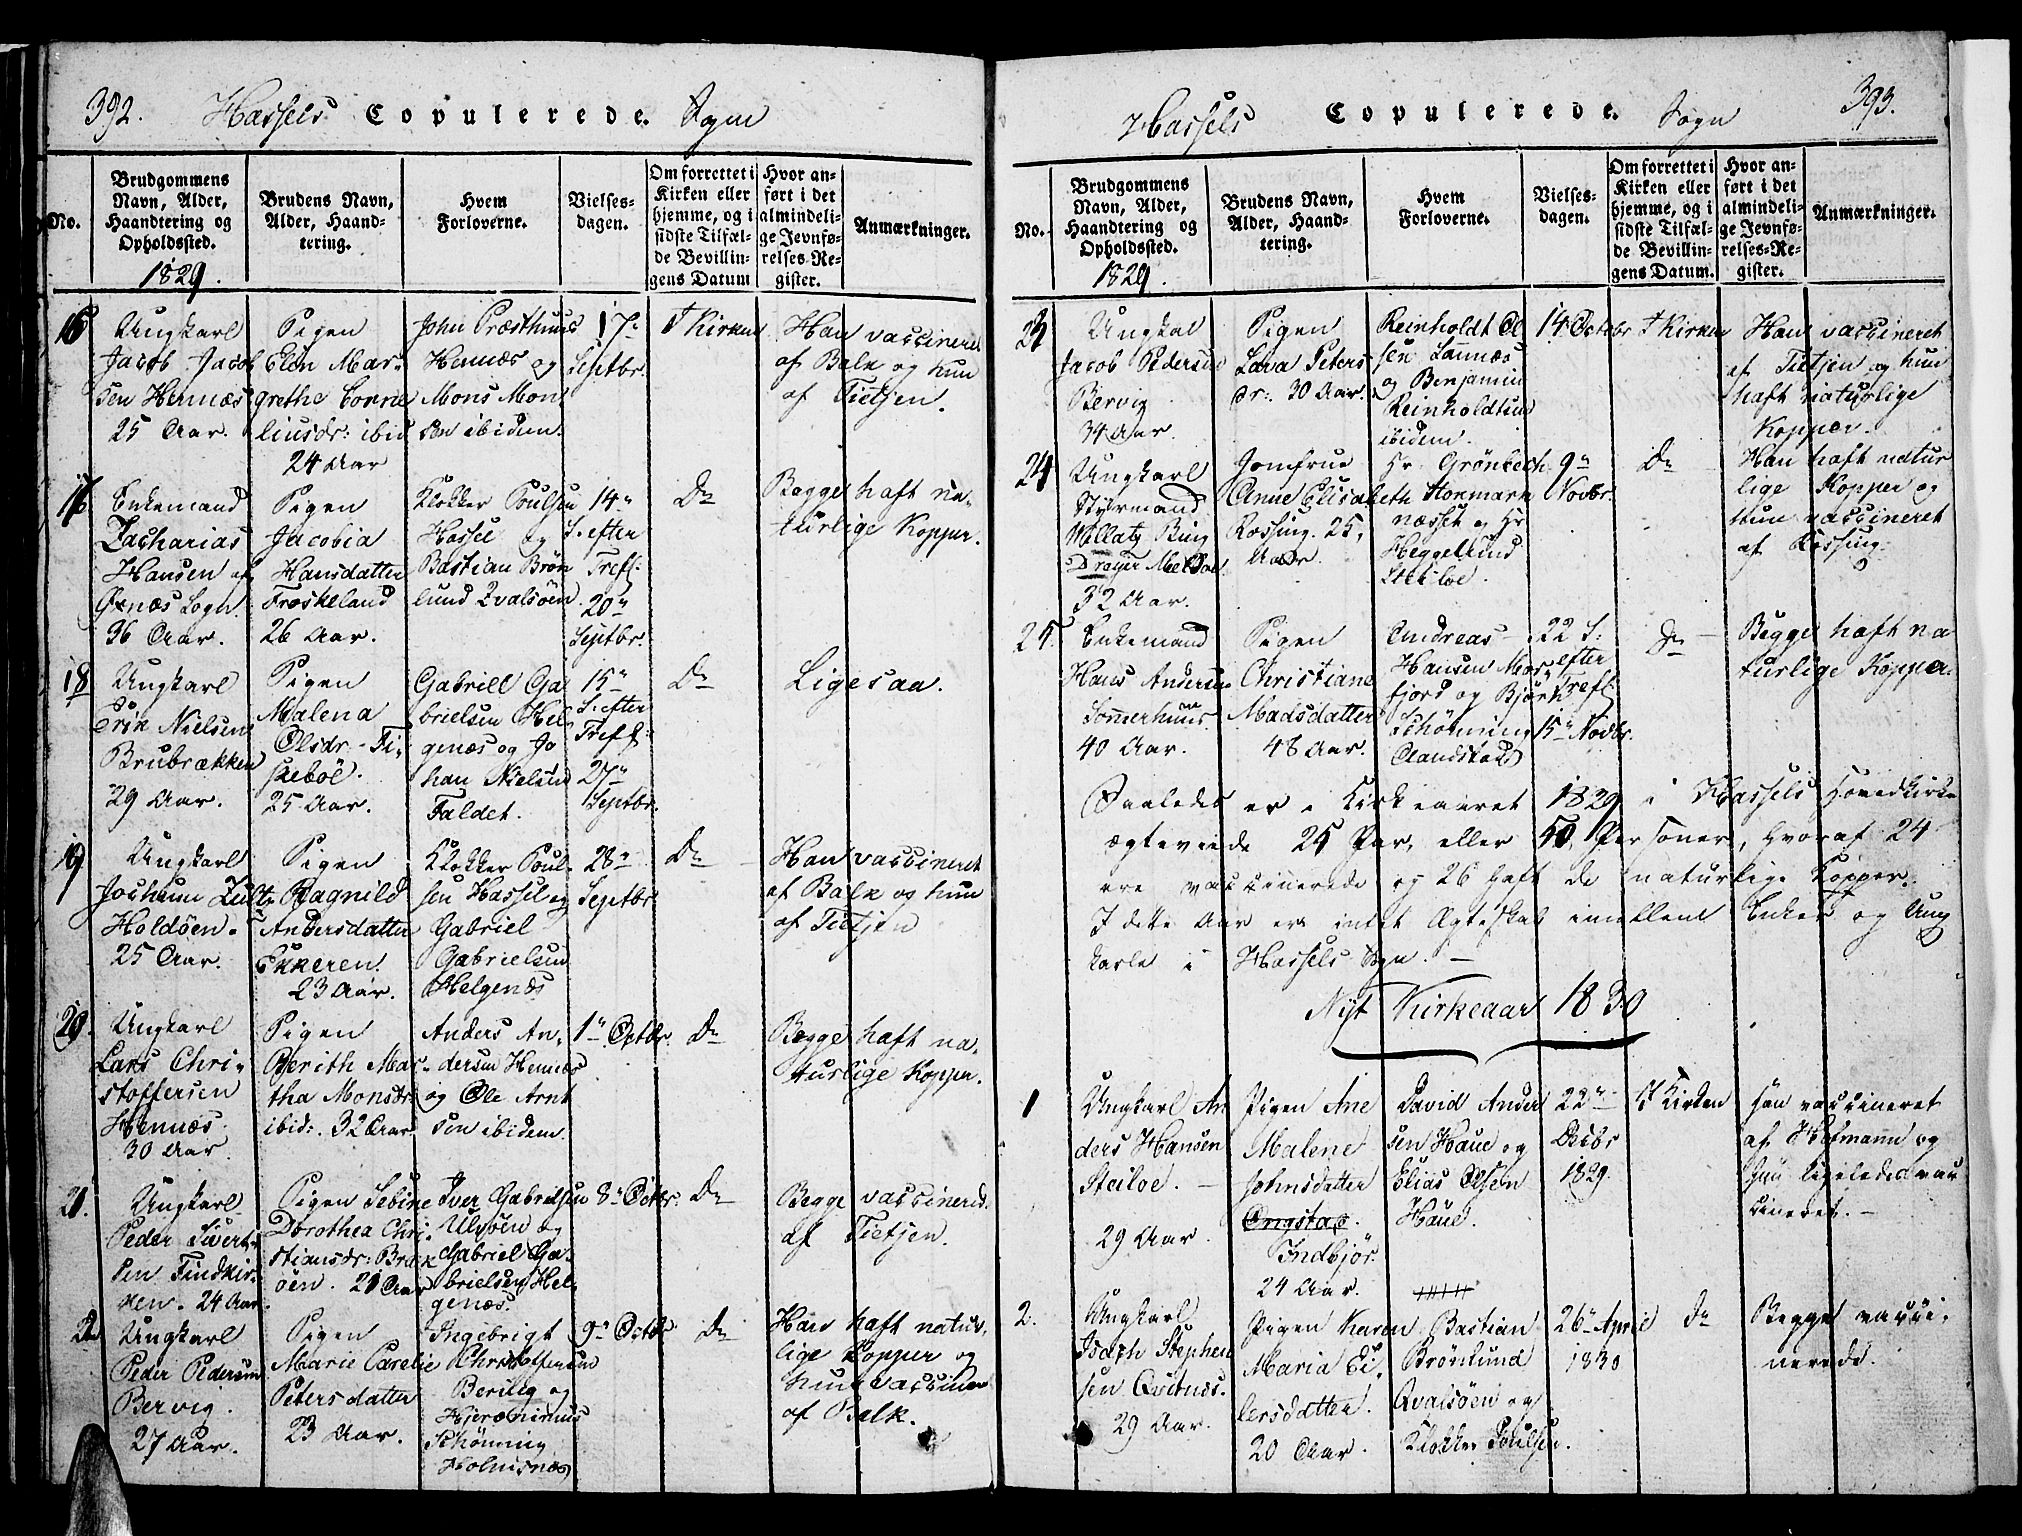 392. Hassels Copulerede. Sogn
No.
Brudgommens Navn, Alder, Haandtering og Opholdssted.
Brudens Navn, Alder, Haandtering.
Hvem Forloverne.
Vielses-dagen.
Om forrettet i Kirken eller hjemme, og i sidste Tilfælde Bevillingens Datum
Hvor anført i det almindelige Jevnførelses-Register.
Anmærkninger.
1829.
16
Ungkarl
Jacob Jacob
sen Hennæs
25 Aar.
Pigen
Elen Mar-
grethe Corne
liusdr: ibid
24 Aar
John Præsthuus
Hennæs og
Mons Mon
sen ibidem.
17
Septbr.
I Kirken
Han vaccineret
af Balk og hun
af Tietjen.
17
Enkemand
Zacharias
Hansen af
Øxnæs Sogn
36 Aar.
Pigen
Jacobia
Hansdatter
Froskeland
26 Aar.
Klokker Poulsen
Hassel og
Bastian Brøn
lund Qvalsöen
14
S. efter
Tref:
20
Septbr:
Do
Begge haft na-
turlige Kopper.
18
Ungkarl
Erik Nielsen
Brubrækken
29 Aar.
Pigen
Malena
Olsdr. Fi-
skebøl.
25 Aar.
Gabriell Ga
brielsen Hel
genæs og Jo
han Nielsen
Faldet.
15
S. efter
Tref:
27
Septbr.
Do
Ligesaa.
19
Ungkarl
Jochum
Holdöen.
25 Aar.
Pigen
Ragnild
Andersdatter
Ekkeren.
23 Aar.
Klokker Poul-
sen Hassel og
Gabriel
Gabrielsen
Helgenæs
28
Septbr
Do
Han vaccineret
af Balk og hun
af Tietjen
20.
Ungkarl
Lars Chri-
stoffersen
Hennæs.
30 Aar.
Pigen
Berith Mar-
tha Monsdr
ibid: 32 Aar
Anders An-
dersen Hennæs
og Ole Arnt
sen ibidem.
1 Octbr.
Do
Begge haft na-
turlige Kopper.
21.
Ungkarl
Peder Sivert
sen Findkir-
ken. 24 Aar.
Pigen Sebine
Dorothea Chri-
stiansdr: Brok
öen. 21 Aar
Iver Gabrielsen
Ulvöen og
Gabriel Ga-
brielsen Hel-
genæs.
8 Octbr.
Do
Begge vaccinered.
af Tietjen.
22
Ungkarl
Peder Pedersen
Bervig.
27 Aar.
Pigen
Marie Parelie
Petersdatter
23 Aar.
Ingebrigt
Christoffersen
Bervig og
Hieronimus
Schönning
Holmsnæs
9 Octbr
Do
Han haft natur-
lige Kopper og
hun vaccineret
af Balk.
Hassels Copulerede. Sogn 393.
No.
Brudgommens Navn, Alder, Haandtering og Opholdssted.
Brudens Navn, Alder, Haandtering.
Hvem Forloverne.
Vielses-dagen.
Om forrettet i Kirken eller hjemme, og i sidste Tilfælde Bevillingens Datum.
Hvor anført i det almindelige Jevnførelses-Register.
Anmærkninger.
1829.
23
Ungkal
Jacob Pedersen
Bervig
34 Aar.
Pigen
Lava Peters
dr: 30 Aar.
Reinholdt Ol
sen
og Benjamin
Reinholdtsen
ibidem.
14 Octobr
I Kirken
Han vaccineret
af Tietjen og hun
haft naturlige
Kopper.
24
Ungkarl
Styrmand
Dreyer
32 Aar.
Jomfrue
Anne Elisabeth
Rossing. 25
Aar
Hr. Grönbech
Stormark
næsset og Hr
Heggelund
Steiloe.
9
Novbr.
Do
Han haft natur
lige Kopper og
Hun vaccineret
af Rossing.
25.
Enkemand
Hans Andersen
Sommerhuus
40 Aar.
Pigen
Christiane
Madsdatter
48 Aar.
Andreas
Hansen Mor-
fjord og Björn
Schönning
Sandstad
22 S:
efter
Tref:
15 Novbr.
Do
Begge haft na
turlige Kopper.
Saaledes er i Kirkeaaret 1829 i Hassels Hovedkirke
ægteviede 25 Par, eller 50 Personer, hvoraf 24
ere vaccinerede og 26 haft de naturlige Kopper.
I dette Aar er intet Ægteskab imellem Enker og Ung
karle i Hassels Sogn. —
Nyt Kirkeaar 1830
1
Ungkarl An
ders Hansen
Steiloe. —
29 Aar.
Pigen Ane
Malene
Johnsdatter
Ongstad.
Indbjör.
24 Aar.
David Ander
sen Haue og
Elias Olsen
Haue.
22
Decbr
1829.
I Kirken
Han vaccineret
af Hofmann og
hun ligeledes vac
cineret. —
2.
Ungkarl
Joseph Stephen
sen Qvitnes.
29 Aar.
Pigen Karen
Maria Ei-
lersdatter.
20 Aar.
Bastian
Brönlund
Qvalsöen og
Klokker Poulsen.
26 April
1830
Do
Begge vacci-
nerede.